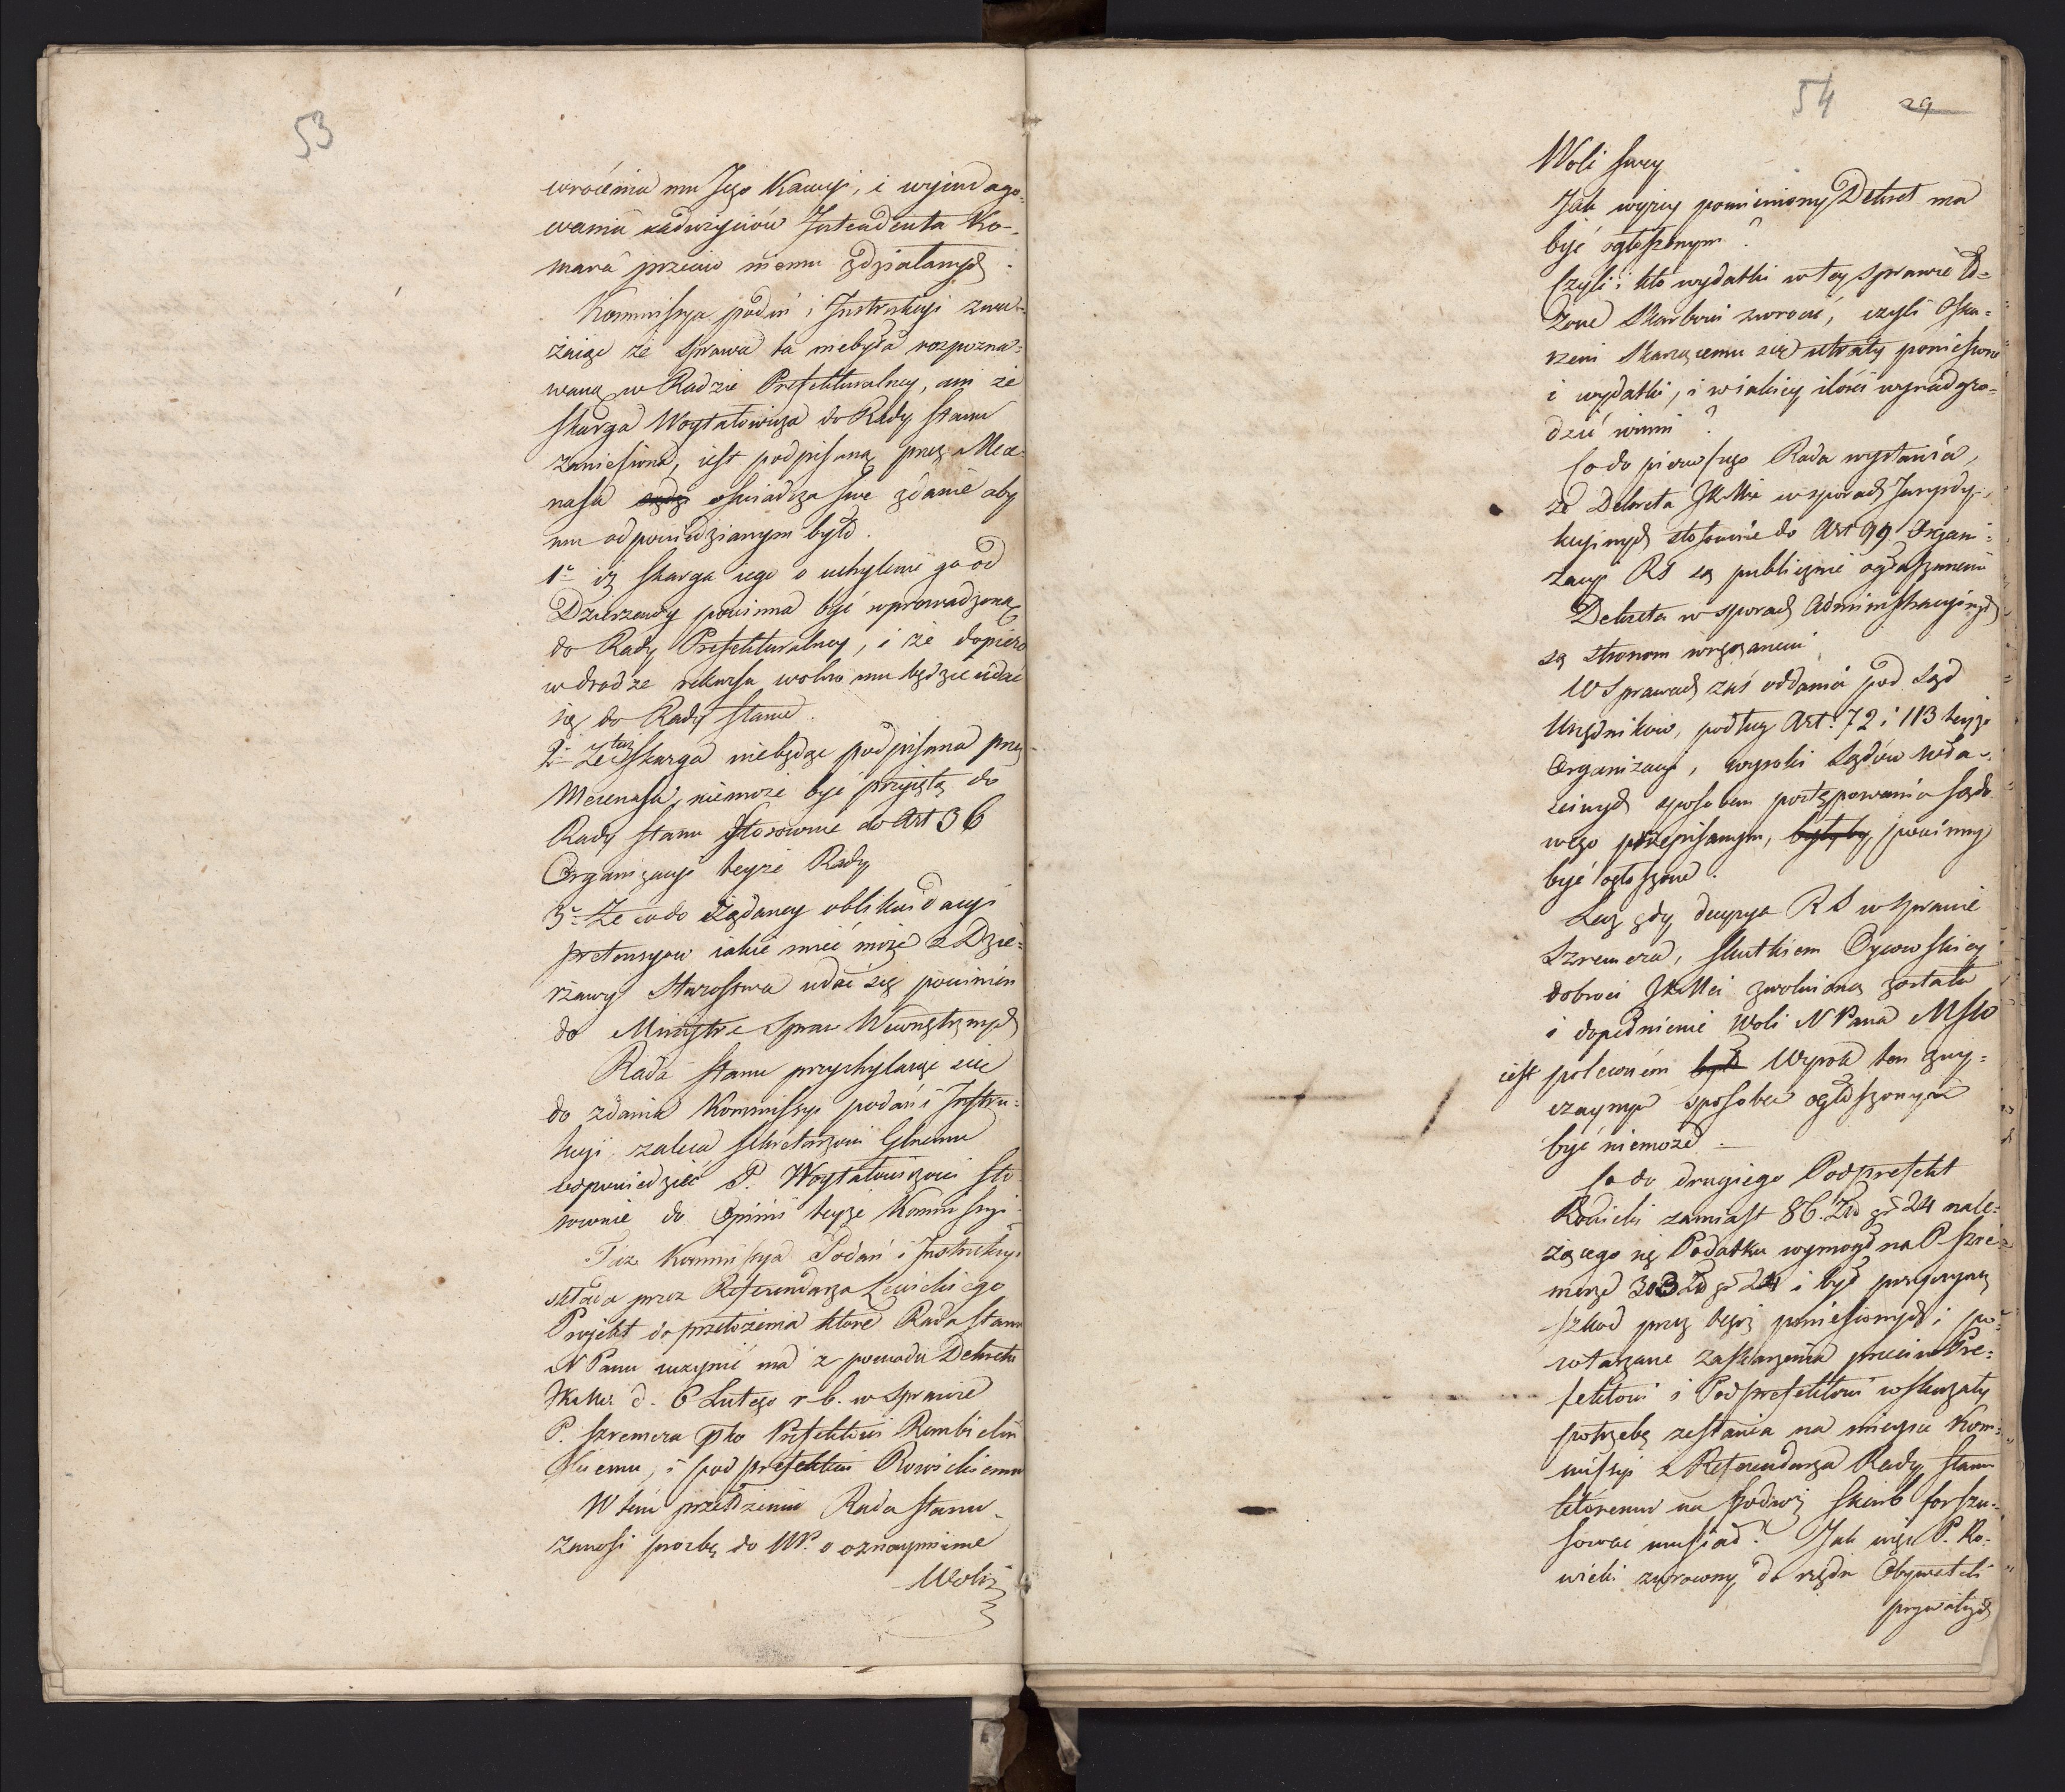 53
wrócenia mu Jego Kaucyi, i wyindago=
wania nadużyciów Intendenta Ko-
mara przeciw niemu zdziałanych.
Kommissya podań i Instrukcyi zwa-
żaiąc że Sprawa ta niebyła rozpozna=
waną w Radzie Prefekturalney, ani że
skarga Woytatowicza do Rady Stanu
zaniesiona, iest podpisaną przez Mece=
nasa oświadcza swe zdanie aby
mu odpowiedzianym było.
1o iż skarga iego o uchylenie go od
Dzierzawy powinna być wprowadzoną
do Rady Prefekturalney, i że dopiero
w drodze rekursu wolno mu będzie udać
się do Rady Stanu.
2o Że taż Skarga niebędąc podpisana przez
Mecenasa, niemoże być przyięta do
Rady Stanu stosownie do Art 36
Organizacyi teyże Rady
3o Że co do żądaney oblikwidacyi
pretensyow iakie mieć może z Dzie=
rżawy Starostwa udać się powinien
do Ministra Spraw Wewnętrznych
Rada Stanu przychylaiąc się
do zdania Kommissyi podań i Instru=
kcyi zaleca Sekretarzowi Glnemu
odpowiedzieć P. Woytatowiczowi sto
sownie do Opinii teyże Kommissyi.
Taż Kommissya Podań i Instrukcyi
składa przez Referendarza Lewickiego
Projekt do przełożenia które Rada Stanu
N Panu uczynić ma z powodu Dekretu
JKMci d. 6 Lutego r. b. w Sprawie
P. Szremera pko Prefektowi Rembieliń
skiemu, i podprefektowi Rowickiemu
W tém przełożeniu Rada Stanu
zanosi prozbę do NP. o oznaymienie
Woli
54
29
Woli swey
Jak wyżey pomieniony Dekret ma
być ogłoszonym?
Czyli i kto wydatki w tey Sprawie ło=
żone Skarbowi zwrócić, czyli Oska=
rzeni Skarżącemu się utraty poniesione
i wydatki, i w iakiey ilości wynadgro=
dzić winni?
Co do pierwszego Rada wystawia,
że Dekreta JKMci w sporach Juryzdy=
kcyinych stosownie do Art 99 Organi=
zacyi RS są publicznie ogłaszanemi
Dekreta w sporach Administracyinych
są stronom wręczanemi
W Sprawach zaś oddania pod Sąd
Urzędnikow, podług Art. 72 i 113 teyże
Organizacyi, wyroki Sądów wła=
ściwych sposobem postępowania sądo
wego przepisanym, byłyby powinny
być ogłoszone.
Lecz gdy decyzya RS w Sprawie
Szremera, skutkiem Oycowskiey
dobroci JKMci zwolnioną została
i dopełnienie Woli N Pana MSw
iest poleconém był Wyrok ten zwy=
czaynym sposobem ogłoszonym
być niemoże.
Co do drugiego Podprefekt
Rowicki zamiast 86. Złl gr 24 nale=
żącego się Podatku wymógł na P Szre=
merze 303 Zł gr 24 i był przyczyną
szkod przez tegoż poniesionych i po=
wtarzane Zaskarżenia przeciw Pre=
fektowi i Podprefektowi wskazały
potrzebę zesłania na mieysce Kom=
missyi z Referendarza Rady Stanu
któremu na podróż Skarb forszu=
sować musiał. Jak więc P. Ro=
wicki zwrócony do rzędu Obywateli
prywatnych